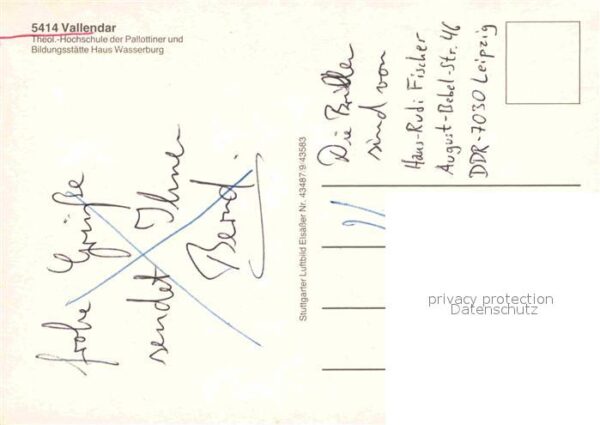 5414 Vallendar
Theol.-Hochschule der Pallottiner und
Bildungsstätte Haus Wasserburg
frohe Grüße
sendet Ihnen
Bernd.
Stuttgarter Luftbild Elsäßer Nr. 43487.9/43583
Die Bilder
sind von
Hans-Rudi Fischer
August-Bebel-Str. 46
DDR-7030 Leipzig
privacy protection
Datenschutz